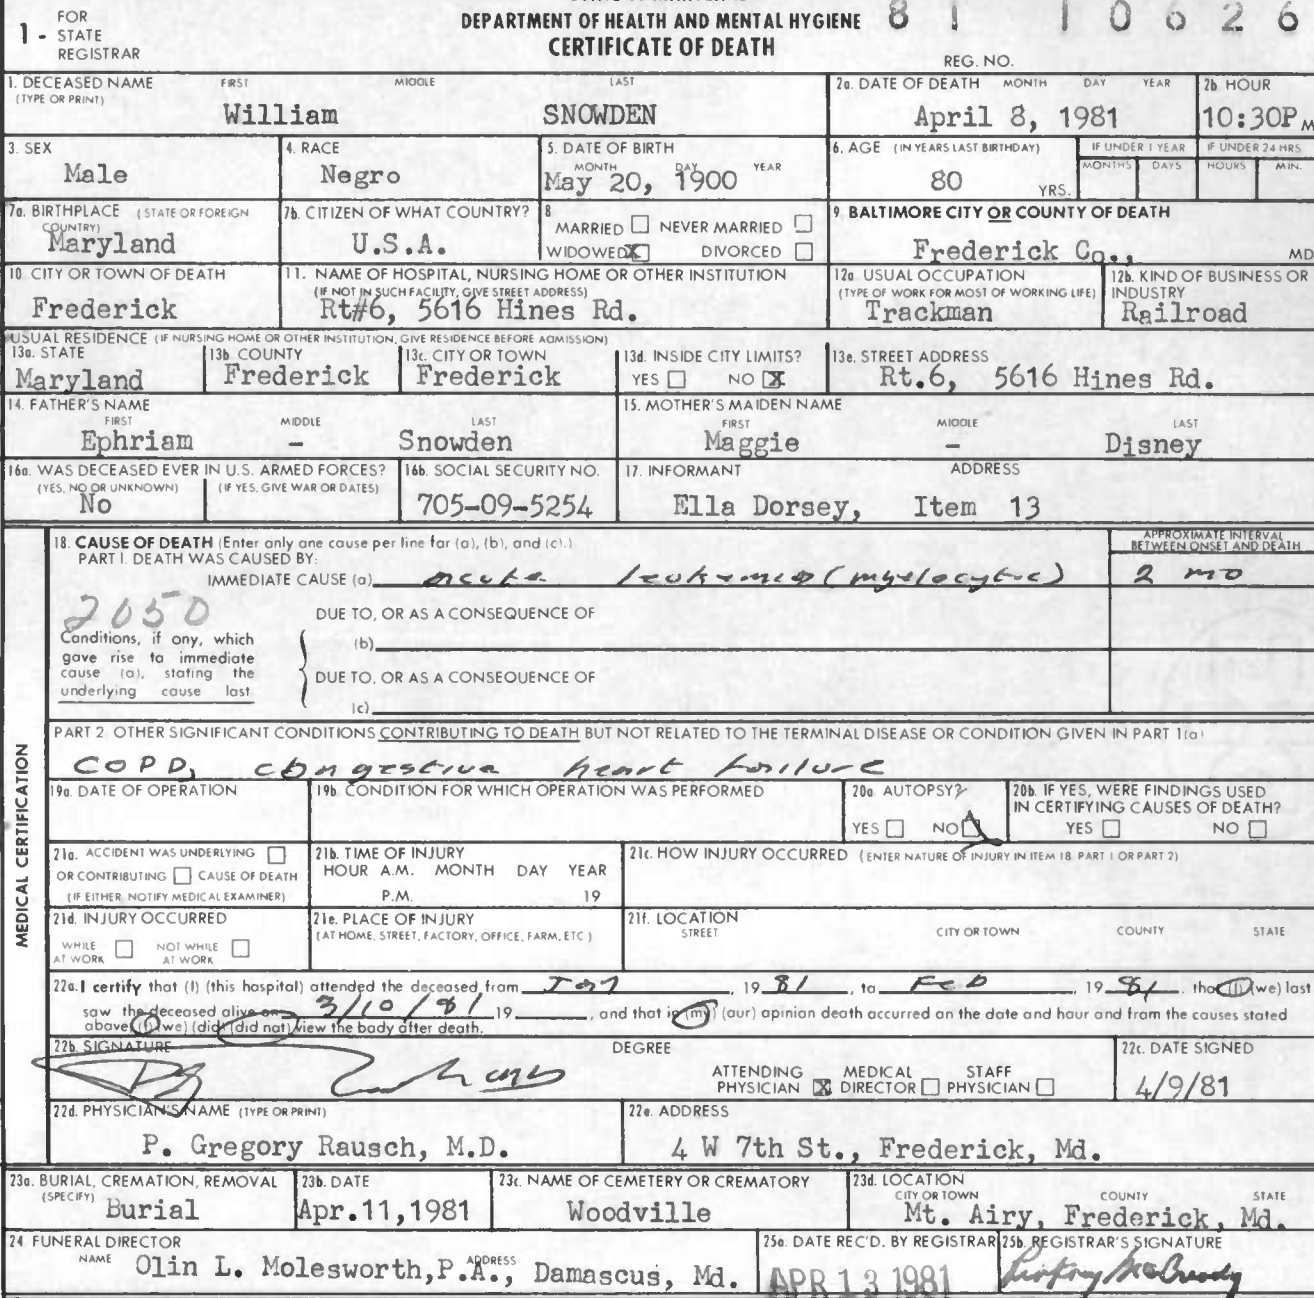 DEPARTMENT OF HEALTH AND MENTAL HYGIENE 81 10626
CERTIFICATE OF DEATH
1 - FOR STATE REGISTRAR
REG. NO.
1. DECEASED NAME (TYPE OR PRINT) FIRST MIDDLE LAST
William SNOWDEN
2a. DATE OF DEATH MONTH DAY YEAR
April 8, 1981
2b. HOUR
10:30P M
3. SEX
Male
4. RACE
Negro
5. DATE OF BIRTH MONTH DAY YEAR
May 20, 1900
6. AGE (IN YEARS LAST BIRTHDAY)
80 YRS.
IF UNDER 1 YEAR MONTHS DAYS
IF UNDER 24 HRS. HOURS MIN.
7a. BIRTHPLACE (STATE OR FOREIGN COUNTRY)
Maryland
7b. CITIZEN OF WHAT COUNTRY?
U.S.A.
8 MARRIED NEVER MARRIED
WIDOWED X DIVORCED
9. BALTIMORE CITY OR COUNTY OF DEATH
Frederick Co., MD
10. CITY OR TOWN OF DEATH
Frederick
11. NAME OF HOSPITAL, NURSING HOME OR OTHER INSTITUTION
(IF NOT IN SUCH FACILITY, GIVE STREET ADDRESS)
Rt#6, 5616 Hines Rd.
12a. USUAL OCCUPATION
(TYPE OF WORK FOR MOST OF WORKING LIFE)
Trackman
12b. KIND OF BUSINESS OR INDUSTRY
Railroad
USUAL RESIDENCE (IF NURSING HOME OR OTHER INSTITUTION, GIVE RESIDENCE BEFORE ADMISSION)
13a. STATE
Maryland
13b. COUNTY
Frederick
13c. CITY OR TOWN
Frederick
13d. INSIDE CITY LIMITS?
YES NO X
13e. STREET ADDRESS
Rt.6, 5616 Hines Rd.
14. FATHER'S NAME
FIRST MIDDLE LAST
Ephriam - Snowden
15. MOTHER'S MAIDEN NAME
FIRST MIDDLE LAST
Maggie - Disney
16a. WAS DECEASED EVER IN U.S. ARMED FORCES?
(YES, NO OR UNKNOWN) (IF YES, GIVE WAR OR DATES)
No
16b. SOCIAL SECURITY NO.
705-09-5254
17. INFORMANT ADDRESS
Ella Dorsey, Item 13
MEDICAL CERTIFICATION
18. CAUSE OF DEATH (Enter only one cause per line for (a), (b), and (c).)
APPROXIMATE INTERVAL BETWEEN ONSET AND DEATH
PART I. DEATH WAS CAUSED BY:
IMMEDIATE CAUSE (a) acute leukemia (myelocytic) 2 mo
2050
DUE TO, OR AS A CONSEQUENCE OF
(b)
Conditions, if any, which
gave rise to immediate
cause (a), stating the
underlying cause last
DUE TO, OR AS A CONSEQUENCE OF
(c)
PART 2. OTHER SIGNIFICANT CONDITIONS CONTRIBUTING TO DEATH BUT NOT RELATED TO THE TERMINAL DISEASE OR CONDITION GIVEN IN PART 1(a)
COPD, congestive heart failure
19a. DATE OF OPERATION
19b. CONDITION FOR WHICH OPERATION WAS PERFORMED
20a. AUTOPSY?
YES NO
20b. IF YES, WERE FINDINGS USED
IN CERTIFYING CAUSES OF DEATH?
YES NO
21a. ACCIDENT WAS UNDERLYING
OR CONTRIBUTING CAUSE OF DEATH
(IF EITHER, NOTIFY MEDICAL EXAMINER)
21b. TIME OF INJURY
HOUR A.M. MONTH DAY YEAR
P.M. 19
21c. HOW INJURY OCCURRED (ENTER NATURE OF INJURY IN ITEM 18, PART 1 OR PART 2)
21d. INJURY OCCURRED
WHILE AT WORK NOT WHILE AT WORK
21e. PLACE OF INJURY
(AT HOME, STREET, FACTORY, OFFICE, FARM, ETC.)
21f. LOCATION
STREET CITY OR TOWN COUNTY STATE
22a. I certify that (I) (this hospital) attended the deceased from Jan, 1981, to Feb 1981, that (I) (we) last
saw the deceased alive on 3/10/81 19, and that in (my) (our) opinion death occurred on the date and hour and from the causes stated
above (I) (we) (did) (did not) view the body after death.
22b. SIGNATURE
DEGREE
ATTENDING PHYSICIAN X MEDICAL DIRECTOR STAFF PHYSICIAN
22c. DATE SIGNED
4/9/81
22d. PHYSICIAN'S NAME (TYPE OR PRINT)
P. Gregory Rausch, M.D.
22e. ADDRESS
4 W 7th St., Frederick, Md.
23a. BURIAL, CREMATION, REMOVAL (SPECIFY)
Burial
23b. DATE
Apr.11,1981
23c. NAME OF CEMETERY OR CREMATORY
Woodville
23d. LOCATION
CITY OR TOWN COUNTY STATE
Mt. Airy, Frederick, Md.
24. FUNERAL DIRECTOR
NAME Olin L. Molesworth, P.A., ADDRESS Damascus, Md.
25a. DATE REC'D. BY REGISTRAR
APR 13 1981
25b. REGISTRAR'S SIGNATURE